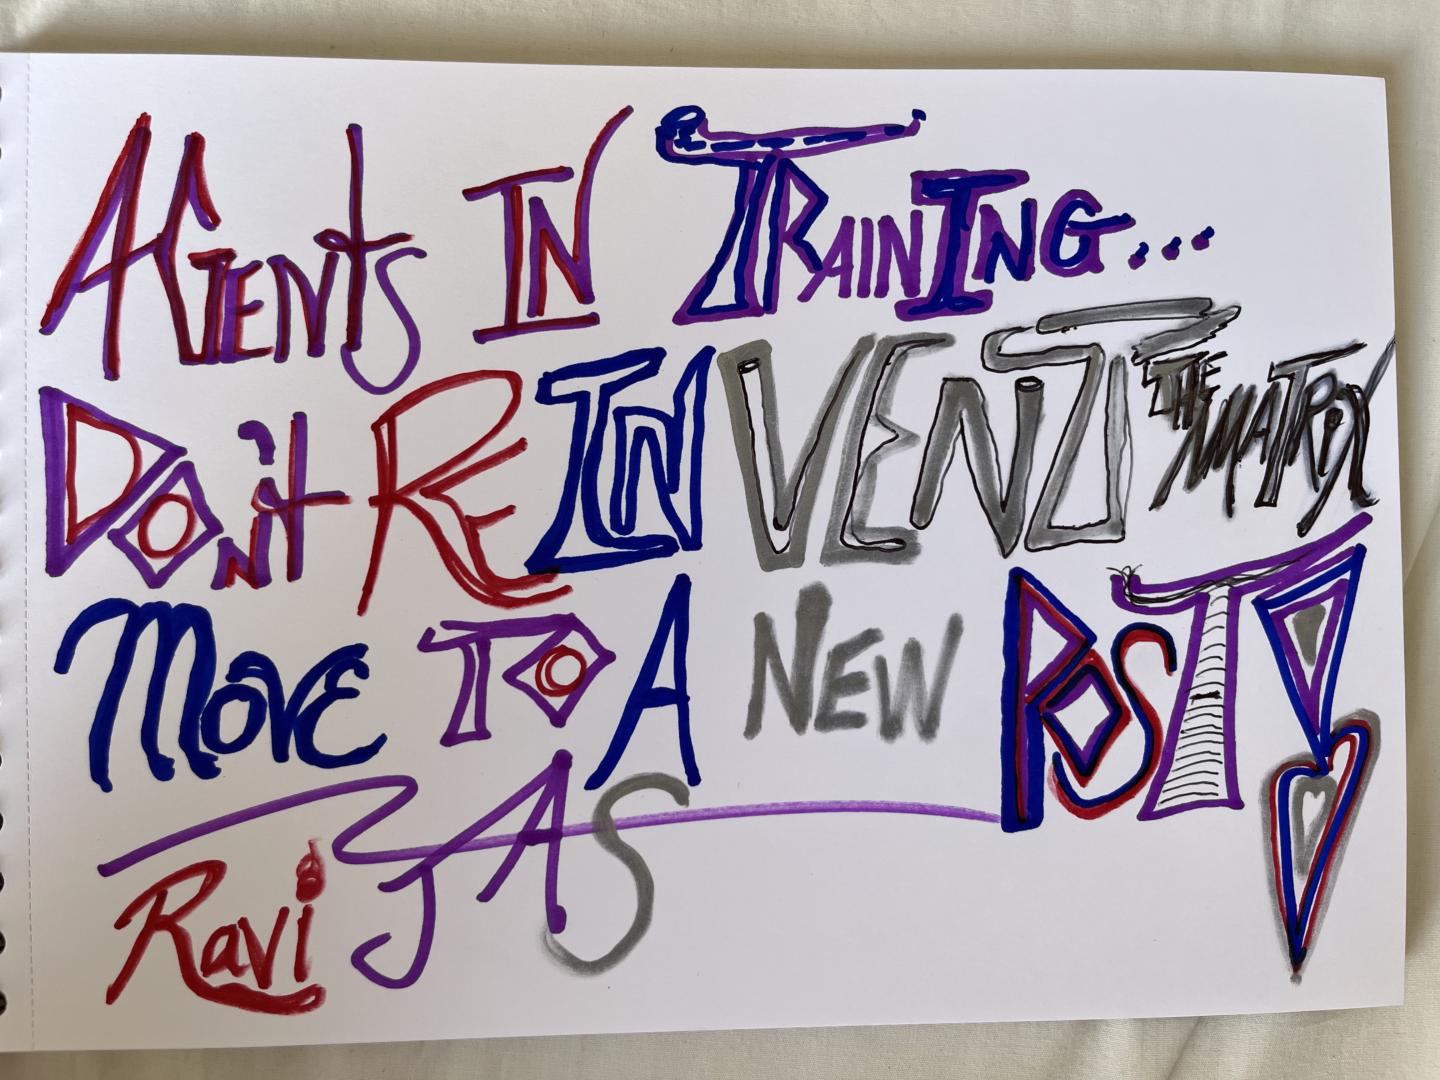 AGENtS IN TRAINING...
DON't REINVENT THE MATRIX
MOVE TO A NEW POST!
Ravi JAS